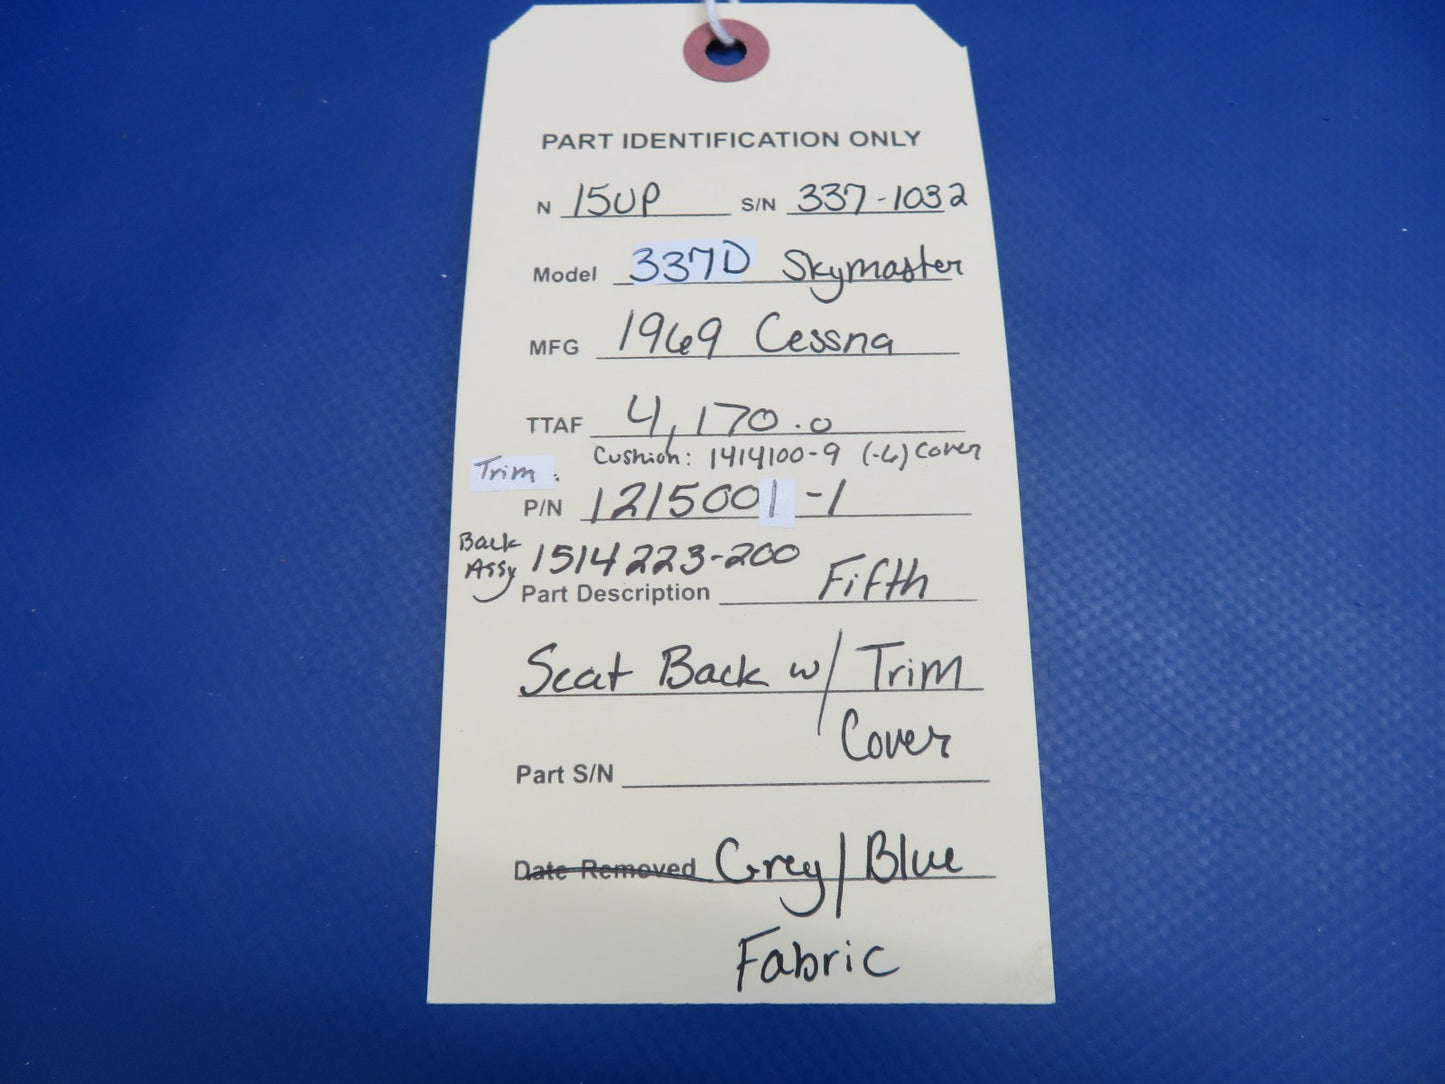 PART IDENTIFICATION ONLY
N 15UP S/N 337-1032
Model 337D Skymaster
MFG 1969 Cessna
TTAF 4,170.0
Cushion: 1414100-9 (-6) Cover
Trim.
P/N 1215001-1
Back Assy 1514223-200
Part Description Fifth
Seat Back w/ Trim
Cover
Part S/N
Date Removed Grey/Blue
Fabric